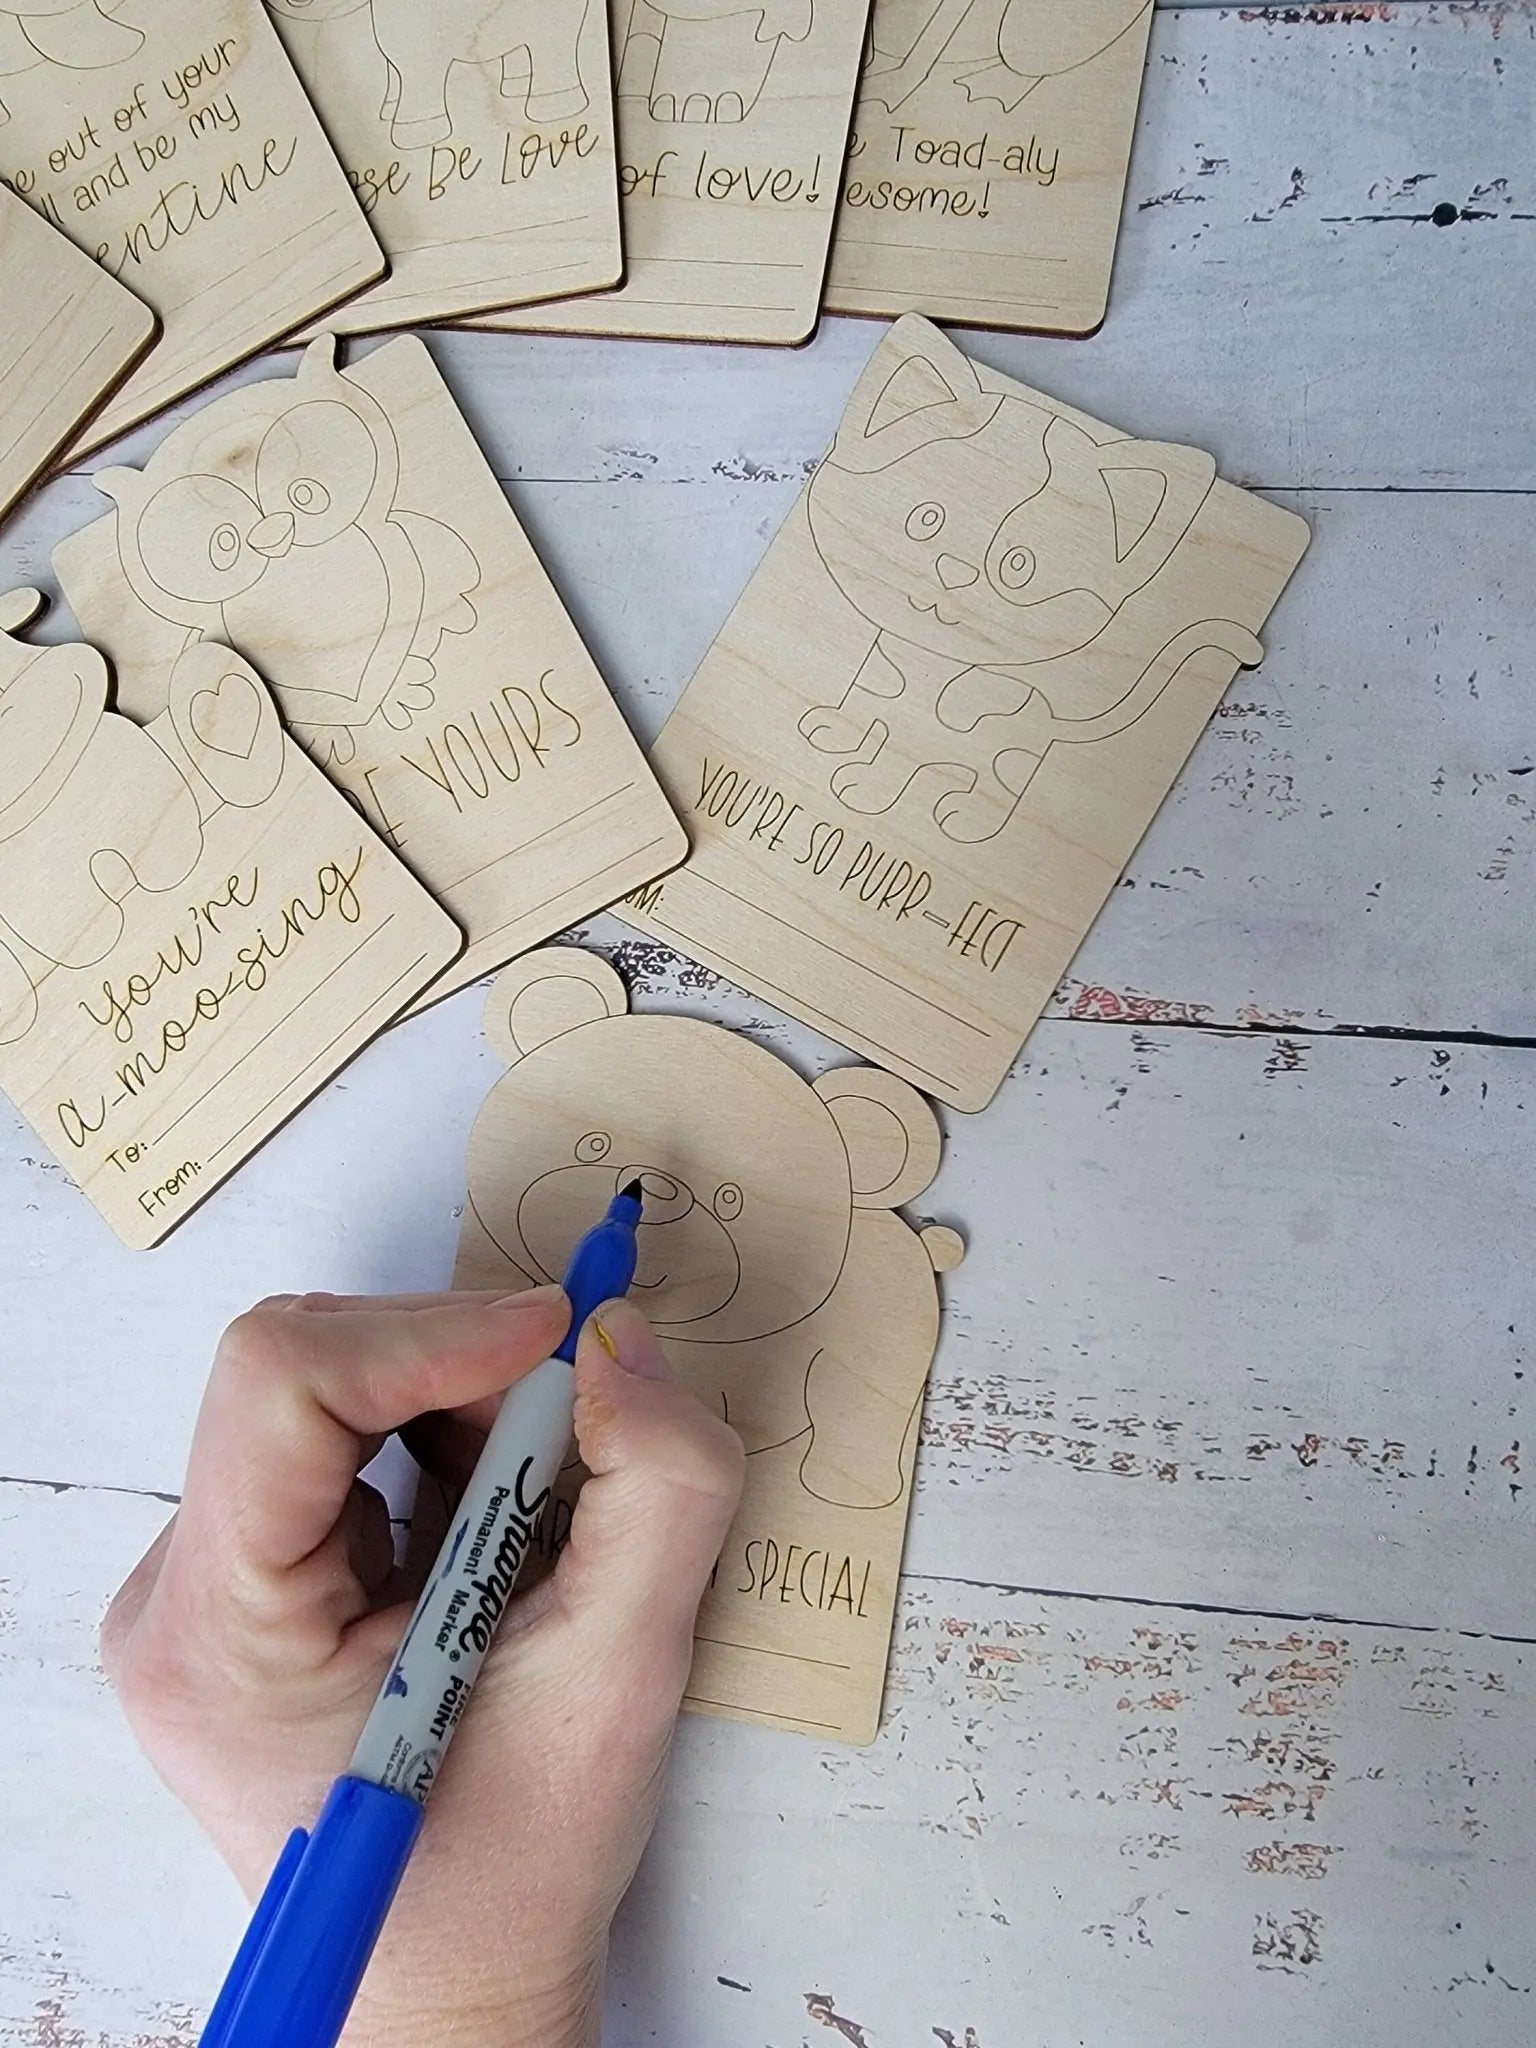 out of your
and be my
Be Love
of love!
Toad-aly
YOURS
YOU'RE SO PURR-FECT
you're
a-moo-sing
To:
From:
SPECIAL
Sharpie
Permanent Marker®
FINE POINT
AP